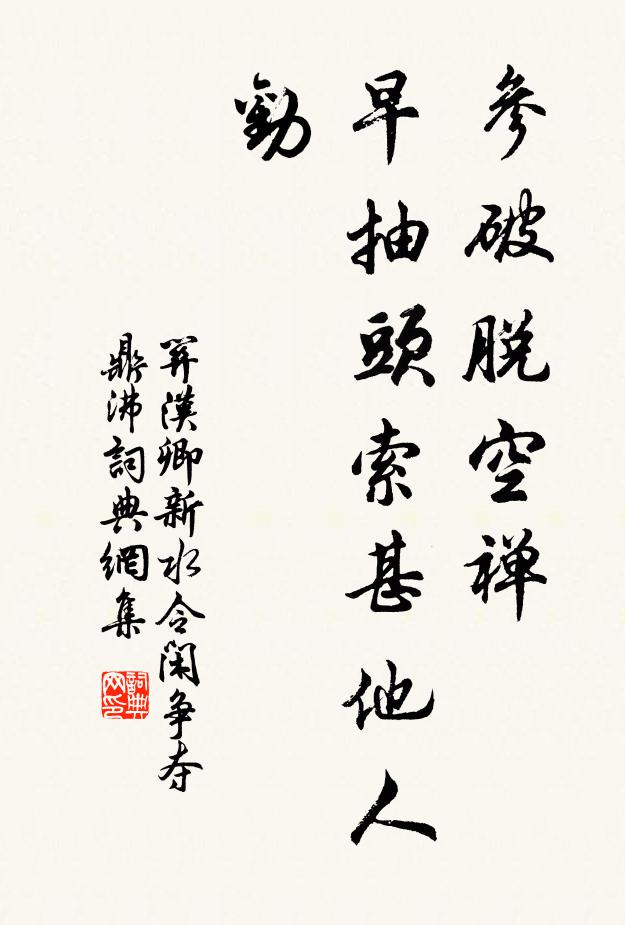 參破脱空禅
早抽頭索甚他人
勸
關漢卿新水令閑争夺
鼎沸詞典網集
詞典网印